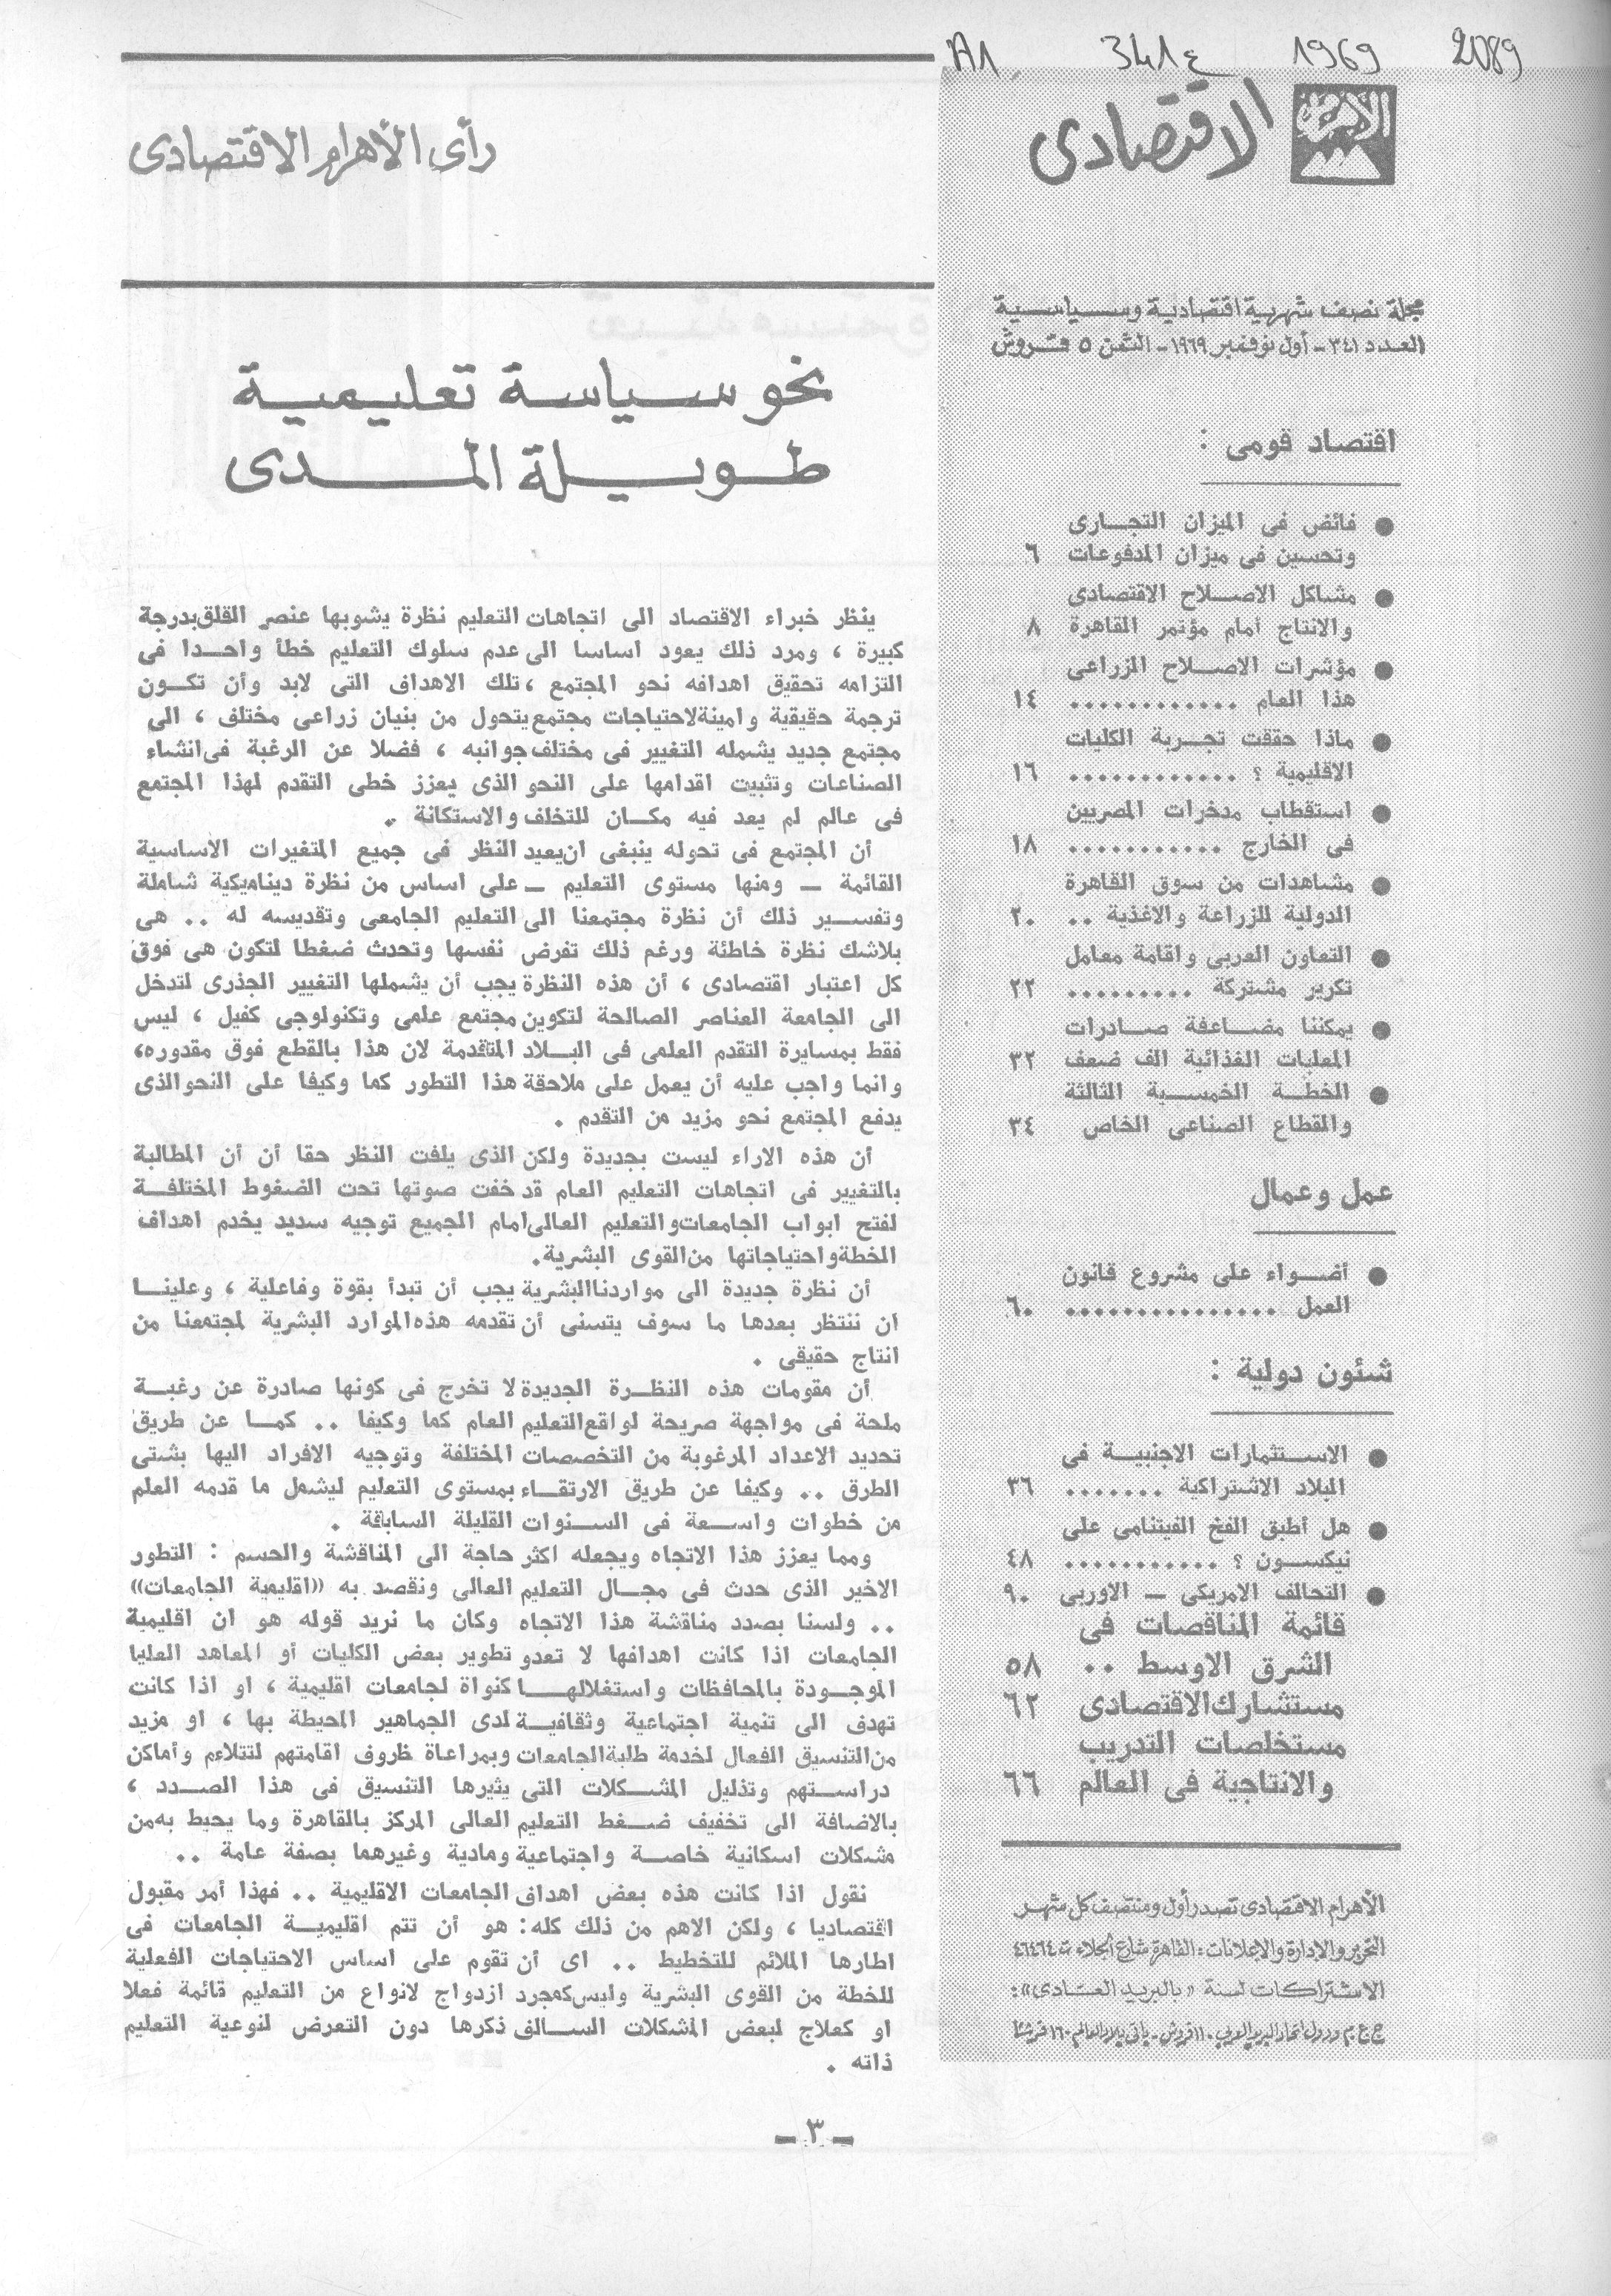 A1 341ع 1969 2089
الأهرام
الاقتصادى
مجلة نصف شهرية اقتصادية وسياسية
العدد ٣٤١ - أول نوفمبر ١٩٦٩ - الثمن ٥ قروش
اقتصاد قومى :
● فائض فى الميزان التجـارى
وتحسين فى ميزان المدفوعات ٦
● مشاكل الاصــلاح الاقتصادى
والانتاج أمام مؤتمر القاهرة ٨
● مؤشرات الاصــلاح الزراعى
هذا العام ............ ١٤
● ماذا حققت تجـربة الكليات
الاقليمية ؟ ............ ١٦
● استقطاب مدخرات المصريين
فى الخارج ........... ١٨
● مشاهدات من سوق القاهرة
الدولية للزراعة والاغذية .. ٢٠
● التعاون العربى واقامة معامل
تكرير مشتركة ......... ٢٢
● يمكننا مضـاعفة صـادرات
المعلبات الغذائية الف ضعف ٣٢
● الخطــة الخمســية الثالثة
والقطاع الصناعى الخاص ٣٤
عمل وعمال
● أضــواء على مشروع قانون
العمل ............... ٦٠
شئون دولية :
● الاســتثمارات الاجنبيــة فى
البلاد الاشتراكية ....... ٣٦
● هل أطبق الفخ الفيتنامى على
نيكســون ؟ ........... ٤٨
● التحالف الامريكى ــ الاوربى ٩٠
قائمة المناقصات فى
الشرق الاوسط .. ٥٨
مستشارك الاقتصادى ٦٢
مستخلصات التدريب
والانتاجية فى العالم ٦٦
الأهرام الاقتصادى تصدر أول ومنتصف كل شهر
التحرير والادارة والاعلانات : القاهرة شارع الجلاء ت ٤٦٤٦٤
الاشتراكات لسنة « بالبريد العادى » :
ج.ع.م ودول اتحاد البريد العربى ١١٠ قروش - باقى بلاد العالم ١٦٠ قرشا
رأى الأهرام الاقتصادى
نحو سياسة تعليمية
طويلة المدى
ينظر خبراء الاقتصاد الى اتجاهات التعليم نظرة يشوبها عنصر القلق بدرجة
كبيرة ، ومرد ذلك يعود اساسا الى عدم سلوك التعليم خطأ واحـدا فى
التزامه تحقيق اهدافه نحو المجتمع ، تلك الاهداف التى لابد وأن تكـون
ترجمة حقيقية وامينة لاحتياجات مجتمع يتحول من بنيان زراعى مختلف ، الى
مجتمع جديد يشمله التغيير فى مختلف جوانبه ، فضلا عن الرغبة فى انشاء
الصناعات وتثبيت اقدامها على النحو الذى يعزز خطى التقدم لهذا المجتمع
فى عالم لم يعد فيه مكـان للتخلف والاستكانة .
أن المجتمع فى تحوله ينبغى ان يعيد النظر فى جميع المتغيرات الاساسية
القائمة ــ ومنها مستوى التعليم ــ على اساس من نظرة ديناميكية شاملة
وتفســير ذلك أن نظرة مجتمعنا الى التعليم الجامعى وتقديسه له .. هى
بلاشك نظرة خاطئة ورغم ذلك تفرض نفسها وتحدث ضغطا لتكون هى فوق
كل اعتبار اقتصادى ، أن هذه النظرة يجب أن يشملها التغيير الجذرى لتدخل
الى الجامعة العناصر الصالحة لتكوين مجتمع علمى وتكنولوجى كفيل ، ليس
فقط بمسايرة التقدم العلمى فى البـلاد المتقدمة لان هذا بالقطع فوق مقدوره ،
وانما واجب عليه أن يعمل على ملاحقة هذا التطور كما وكيفا على النحو الذى
يدفع المجتمع نحو مزيد من التقدم .
أن هذه الاراء ليست بجديدة ولكن الذى يلفت النظر حقا أن أن المطالبة
بالتغيير فى اتجاهات التعليم العام قد خفت صوتها تحت الضغوط المختلفـة
لفتح ابواب الجامعات والتعليم العالى امام الجميع توجيه سديد يخدم اهداف
الخطة واحتياجاتها من القوى البشرية .
أن نظرة جديدة الى مواردنا البشرية يجب أن تبدأ بقوة وفاعلية ، وعلينـا
ان ننتظر بعدها ما سوف يتسنى أن تقدمه هذه الموارد البشرية لمجتمعنا من
انتاج حقيقى .
أن مقومات هذه النظـرة الجديدة لا تخرج فى كونها صادرة عن رغبـة
ملحة فى مواجهة صريحة لواقع التعليم العام كما وكيفا .. كمـا عن طريق
تحديد الاعداد المرغوبة من التخصصات المختلفة وتوجيه الافراد اليها بشتى
الطرق .. وكيفا عن طريق الارتقـاء بمستوى التعليم ليشمل ما قدمه العلم
من خطوات واســعة فى السـنوات القليلة السابقة .
ومما يعزز هذا الاتجاه ويجعله اكثر حاجة الى المناقشة والحسم : التطور
الاخير الذى حدث فى مجـال التعليم العالى ونقصد به «اقليمية الجامعات»
.. ولسنا بصدد مناقشة هذا الاتجاه وكان ما نريد قوله هو ان اقليمية
الجامعات اذا كانت اهدافها لا تعدو تطوير بعض الكليات أو المعاهد العليا
الموجـودة بالمحافظات واستغلالهــا كنواة لجامعات اقليمية ، او اذا كانت
تهدف الى تنمية اجتماعية وثقافيـة لدى الجماهير المحيطة بها ، او مزيد
من التنسيق الفعال لخدمة طلبة الجامعات وبمراعاة ظروف اقامتهم لتتلاءم وأماكن
دراســتهم وتذليل المشـكلات التى يثيرها التنسيق فى هذا الصـدد ،
بالاضافة الى تخفيف ضـغط التعليم العالى المركز بالقاهرة وما يحيط به من
مشكلات اسكانية خاصـة واجتماعية ومادية وغيرهما بصفة عامة ..
نقول اذا كانت هذه بعض اهداف الجامعات الاقليمية .. فهذا أمر مقبول
اقتصاديا ، ولكن الاهم من ذلك كله : هو أن تتم اقليميـة الجامعات فى
اطارها الملائم للتخطيط .. اى أن تقوم على اساس الاحتياجات الفعلية
للخطة من القوى البشرية وليس كمجرد ازدواج لانواع من التعليم قائمة فعلا
او كعلاج لبعض المشكلات السـالف ذكرها دون التعرض لنوعية التعليم
ذاته .
ــ ٣ ــ